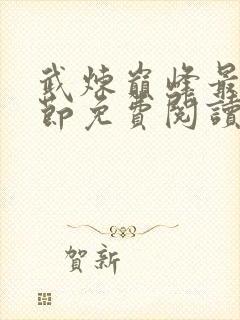 武煉巔峰最
節免費閱讀
賀新